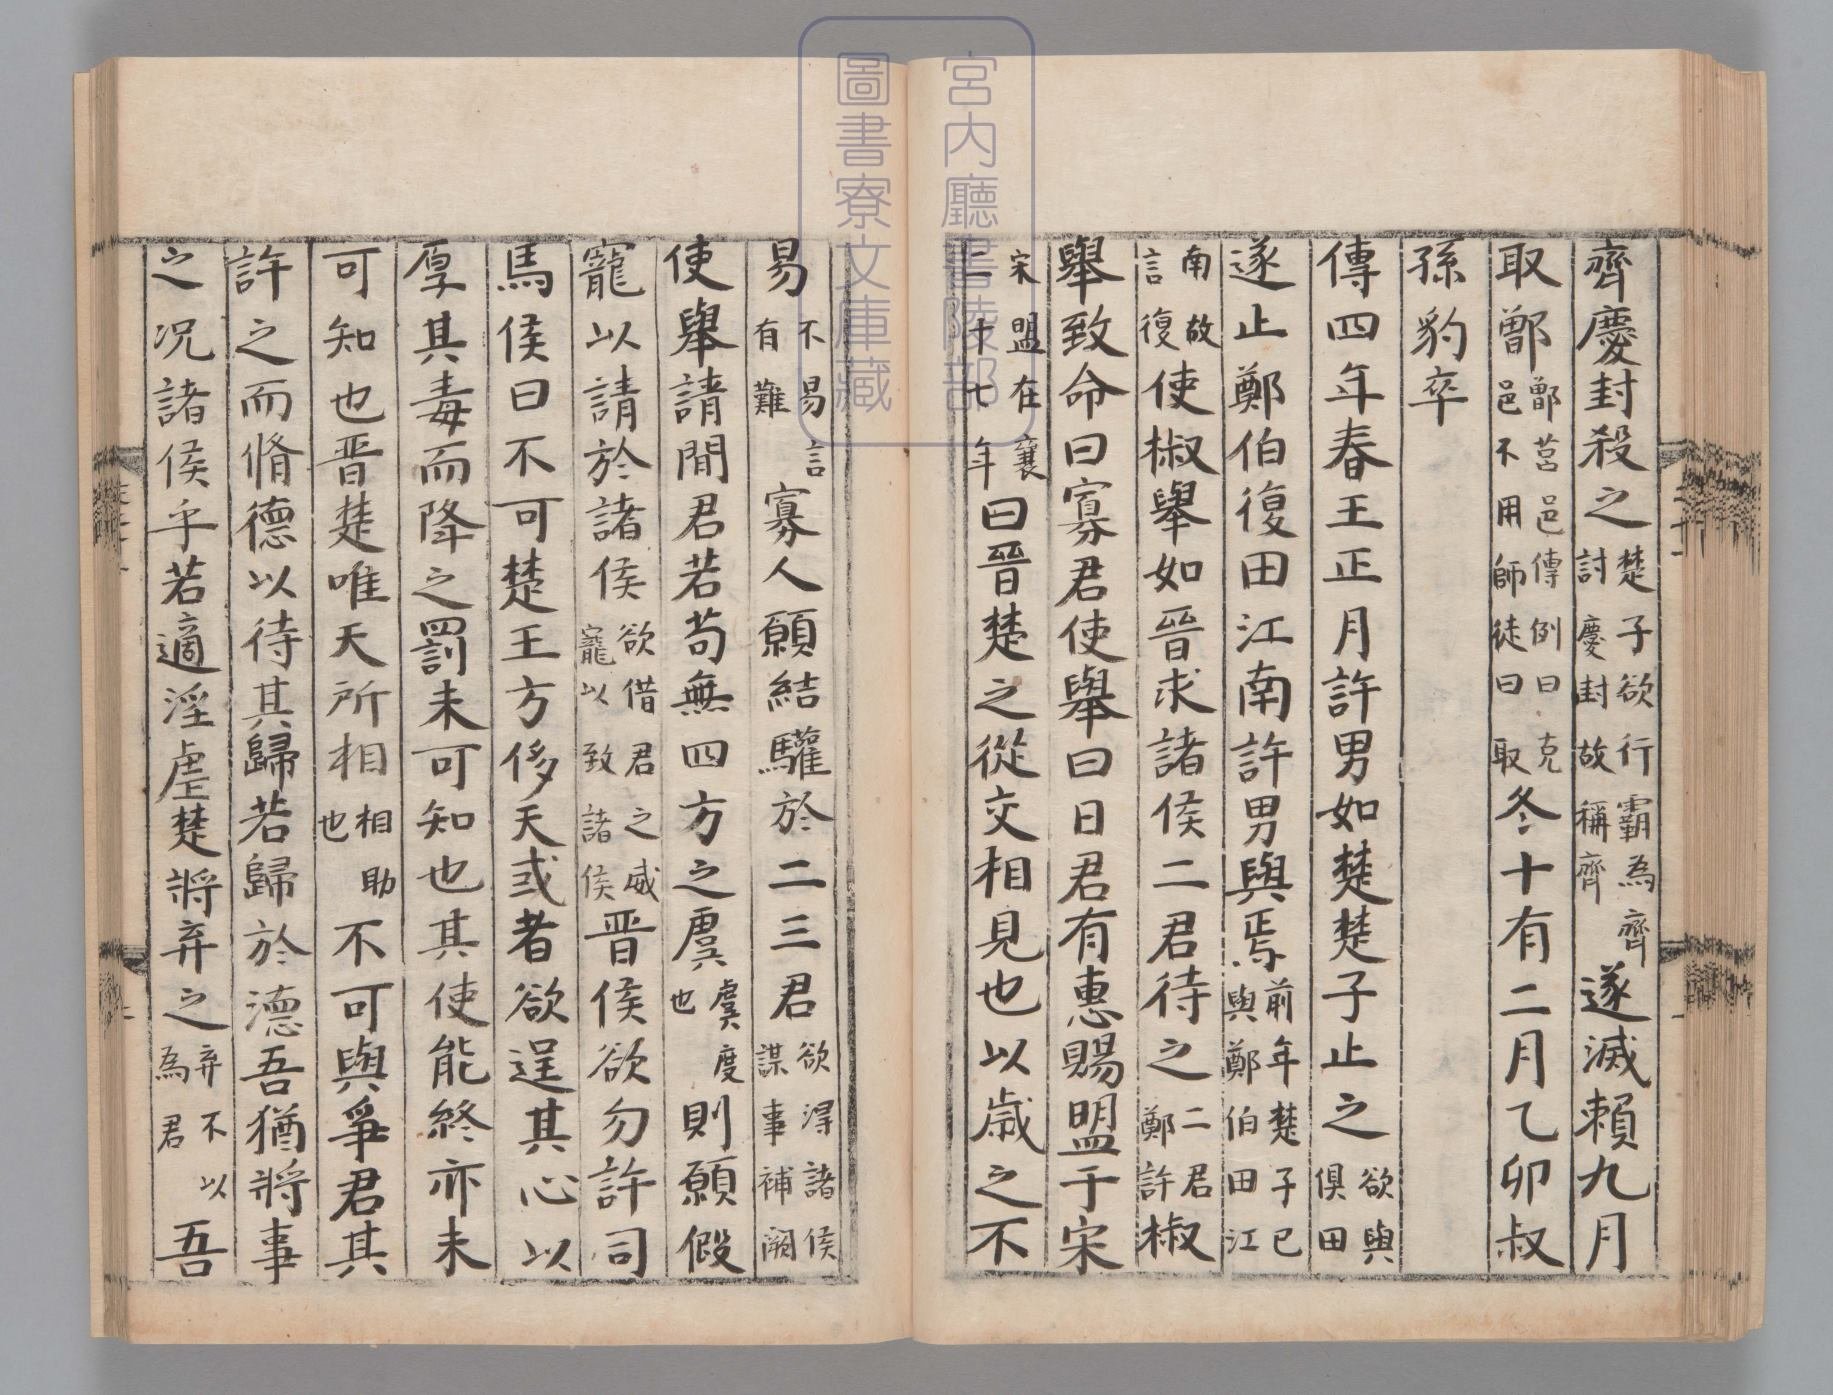 齊慶封殺之楚子欲行霸為齊討慶封故稱齊遂滅賴九月
取鄫鄫莒邑傳例曰克邑不用師徒曰取冬十有二月乙卯叔
孫豹卒
傳四年春王正月許男如楚楚子止之欲與俱田
遂止鄭伯復田江南許男與焉前年楚子已與鄭伯田江
南故言復使椒舉如晉求諸侯二君待之二君鄭許椒
舉致命曰寡君使舉曰日君有惠賜盟于宋
宋盟在襄二十七年曰晉楚之從交相見也以歲之不
易不易言有難寡人願結驩於二三君欲得諸侯謀事補闕
使舉請閒君若苟無四方之虞虞度也則願假
寵以請於諸侯欲借君之威寵以致諸侯晉侯欲勿許司
馬侯曰不可楚王方侈天或者欲逞其心以
厚其毒而降之罰未可知也其使能終亦未
可知也晉楚唯天所相相助也不可與爭君其
許之而脩德以待其歸若歸於德吾猶將事
之况諸侯乎若適淫虐楚將弃之弃不以為君吾
宮内廳書陵部
圖書寮文庫藏